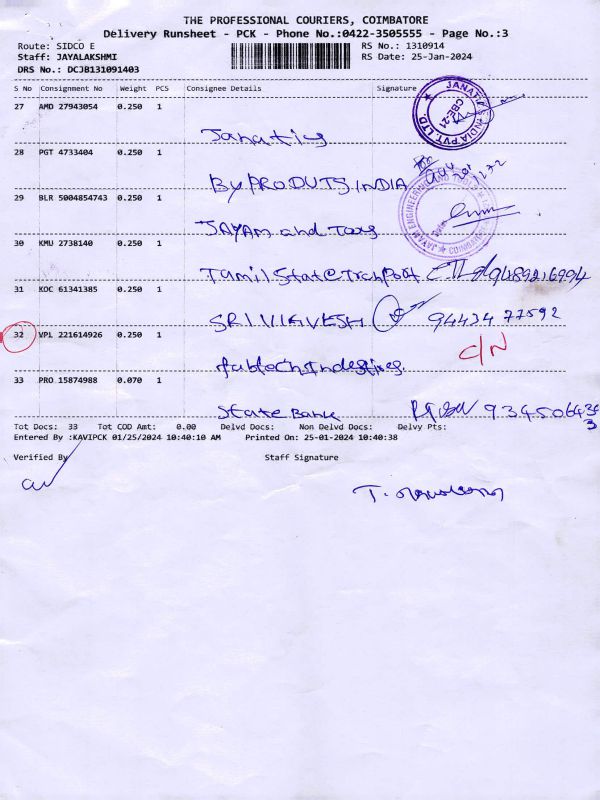 THE PROFESSIONAL COURIERS, COIMBATORE
Delivery Runsheet - PCK - Phone No.:0422-3505555 - Page No.:3
Route: SIDCO E
RS No.: 1310914
Staff: JAYALAKSHMI
RS Date: 25-Jan-2024
DRS No.: DCJB131091403
S No Consignment No Weight PCS Consignee Details Signature
27 AMD 27943054 0.250 1
JANATICS INDIA PVT. LTD. CBE-21
Janatics
28 PGT 4733404 0.250 1
BY PRODUTS INDIA
29 BLR 5004854743 0.250 1
JAYAM ENGINEERING AND TOOLS COIMBATORE
JAYAM and Tools
30 KMU 2738140 0.250 1
Tamil State Tranport 9489216994
31 KOC 61341385 0.250 1
SRI VIGVESH 94434 77592
32 VPL 221614926 0.250 1
C/N
33 PRO 15874988 0.070 1
State Bank
Tot Docs: 33 Tot COD Amt: 0.00 Delvd Docs: Non Delvd Docs: Delvy Pts:
Entered By :KAVIPCK 01/25/2024 10:40:10 AM Printed On: 25-01-2024 10:40:38
Verified By Staff Signature